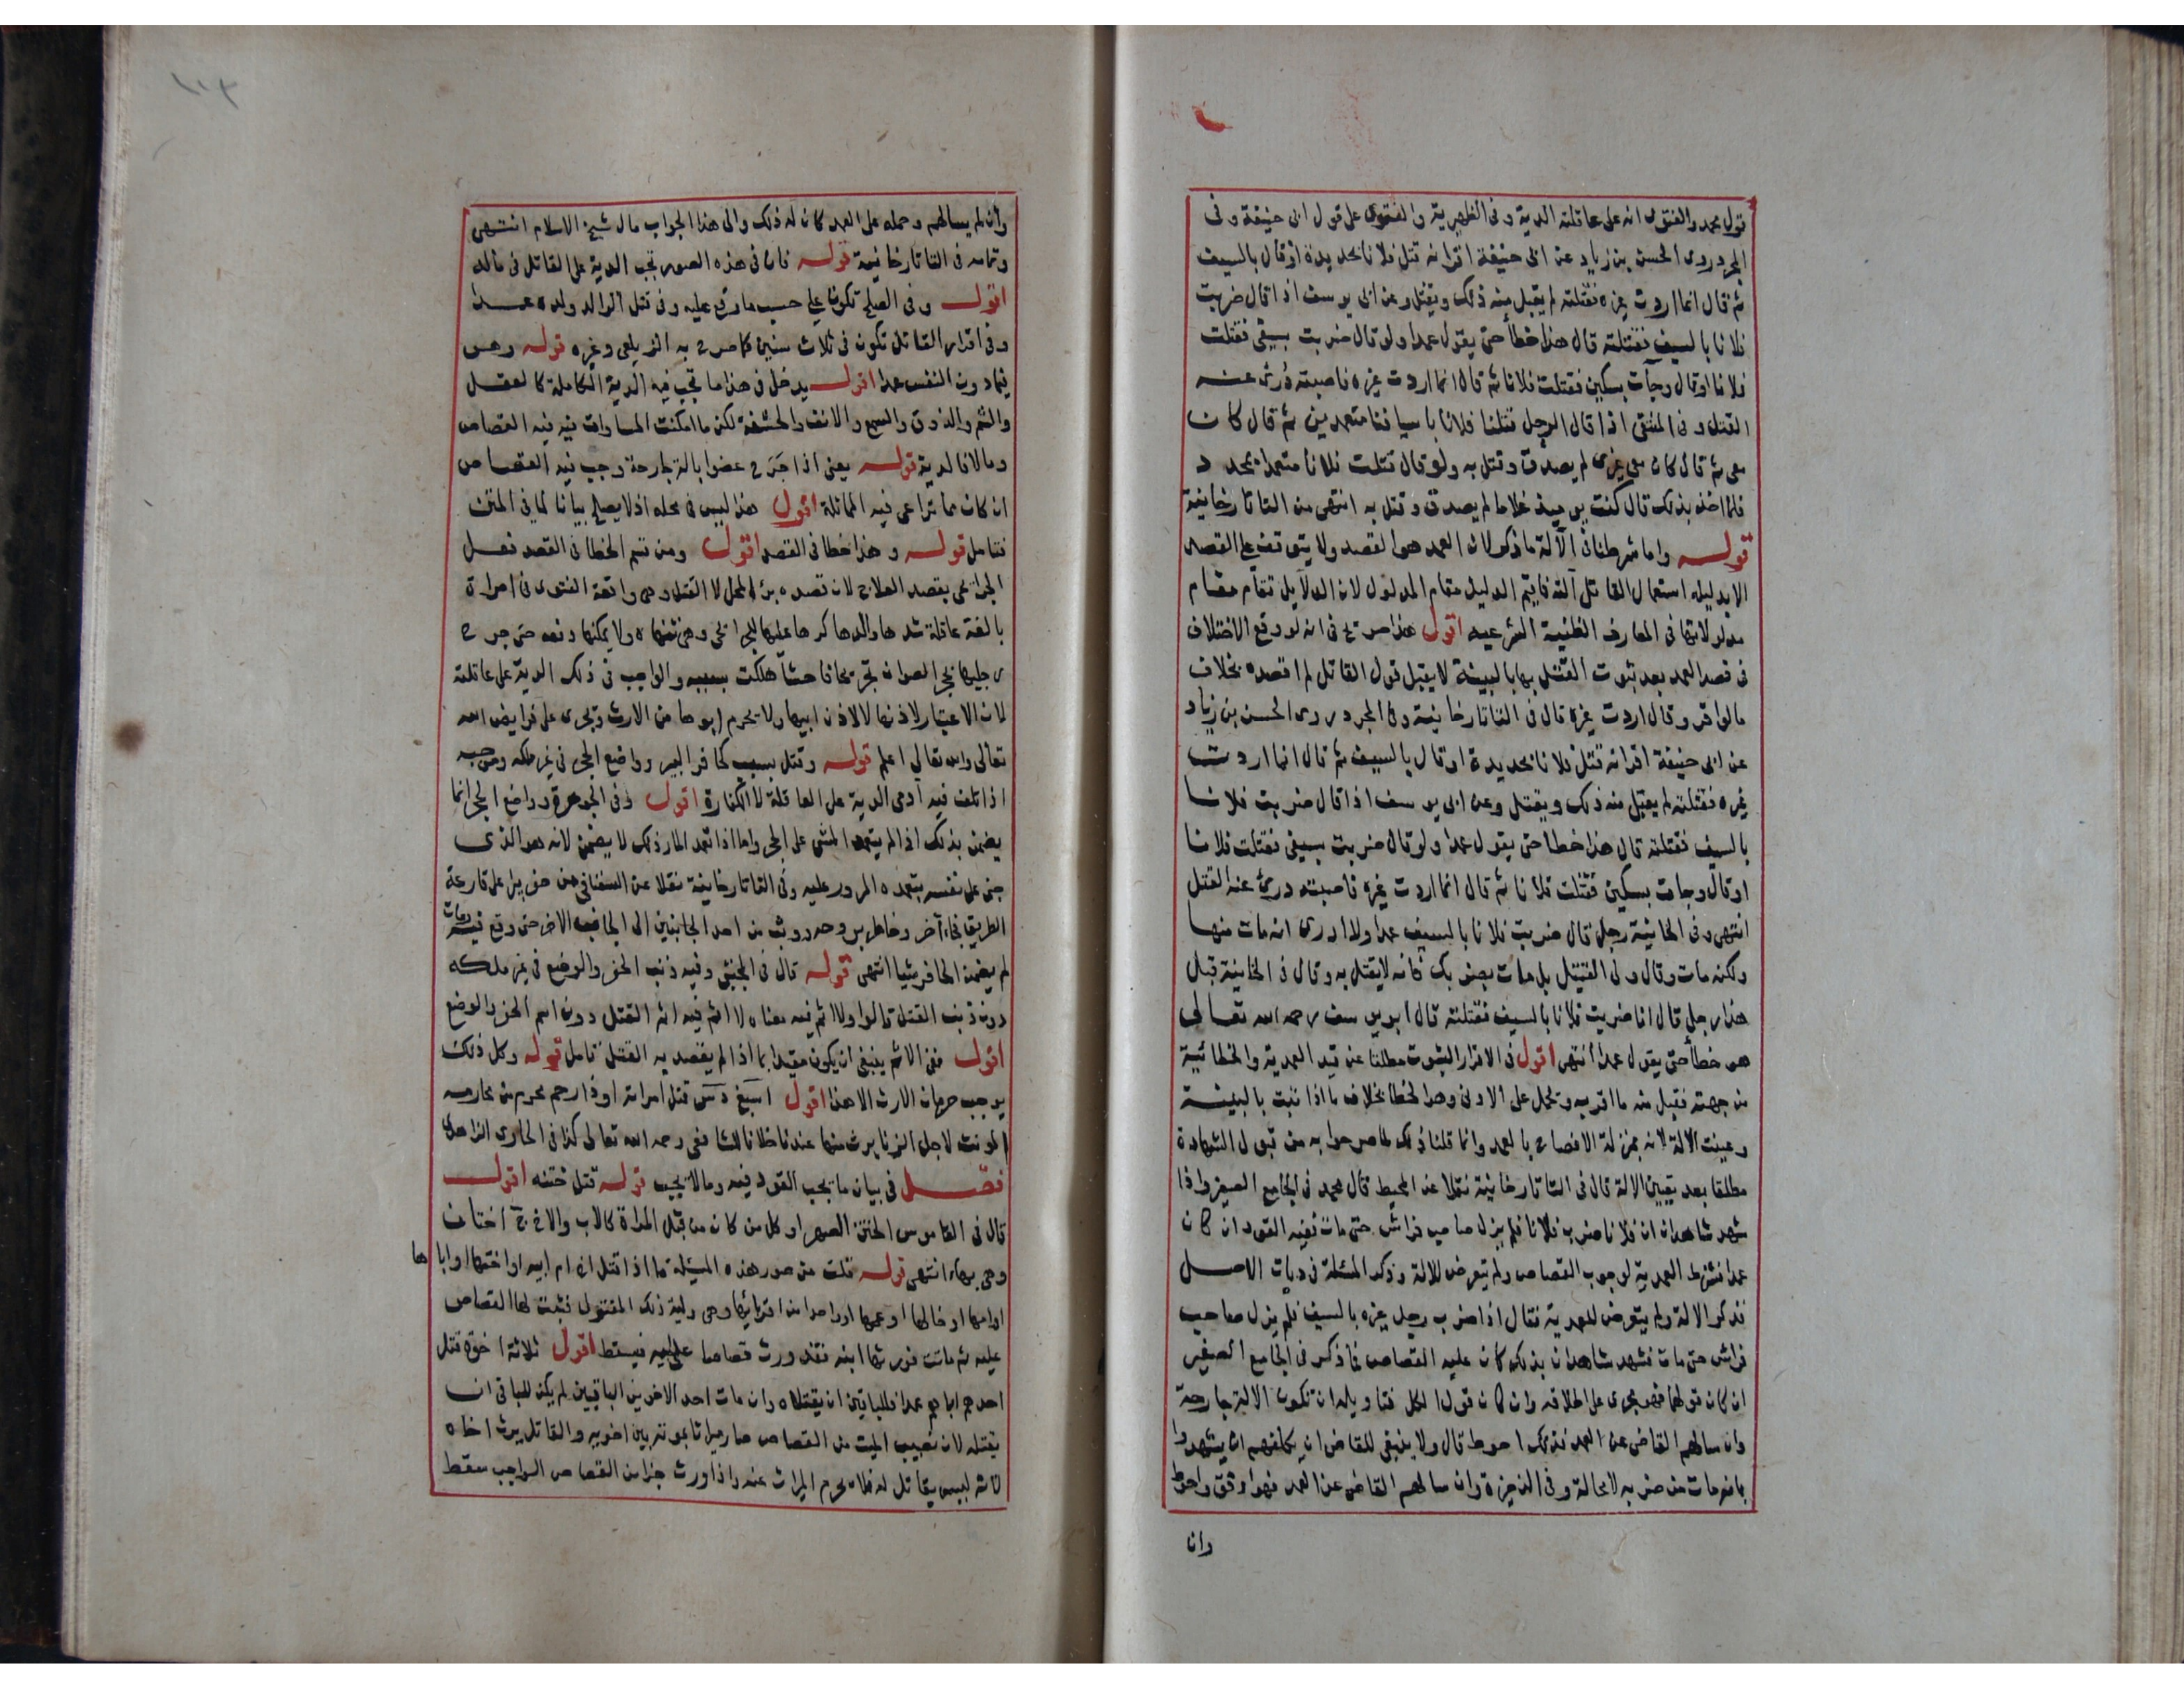 قول محمد والفتوى انه على عاقلته الدية وفى الظهيرية والفتوى على قول ابى حنيفة وفى
المجرد روى الحسن بن زياد عن ابى حنيفة اقرانه قتل فلانا بحديدة اوقال بالسيف
ثم قال انما اردت غيره فقتلته لم يقبل منه ذلك ويقتل وعن ابى يوسف اذا قال ضربت
فلانا بالسيف فقتلته قال هذا خطأ حتى يقول عمدا ولو قال ضربت بسيفى فقتلت
فلانا اوقال وجأت بسكين فقتلت فلانا ثم قال انما اردت غيره فاصبته درئ عنه
القتل وفى المنتقى اذا قال الرجل قتلنا فلانا باسيافنا متعمدين ثم قال كان
معى ثم قال كان معى غيرى لم يصدق وقتل به ولو قال قتلت فلانا متعمدا بحد د
فلما اخذ بذلك قال كنت يوميذ غلاما لم يصدق وقتل به انتهى من التاتارخانية
قوله واما شرطنا فى الآلة ما ذكر لان العمد هو القصد ولا يتوقف على القصد
الا بدليله استعمال القاتل آلته فاقيم الدليل مقام المدلول لان الدلايل تقام مقام
مدلولاتها فى المعارف الظنية الشرعيه اقول هذا صريح فى انه لو وقع الاختلاف
فى قصد العمد بعد ثبوت القتل بها بالبينة لا يقبل قول القاتل لم اقصده بخلاف
مالو اقر وقال اردت غيره قال فى التاتارخانية وفى المجرد روى الحسن بن زياد
عن ابى حنيفة اقرانه قتل فلانا بحديدة اوقال بالسيف ثم قال انما اردت
غيره فقتلته لم يقبل منه ذلك ويقتل وعن ابى يوسف اذا قال ضربت فلانا
بالسيف فقتلته قال هذا خطا حتى يقول عمدا ولو قال ضربت بسيفى فقتلت فلانا
اوقال وجات بسكين فقتلت فلانا ثم قال انما اردت غيره فاصبته درئ عنه القتل
انتهى وفى الخانية رجل قال ضربت فلانا بالسيف عمدا ولا ادرى انه مات منها
ولكنه مات وقال ولى القتيل بل مات بضربك فانه لا يقتل به وقال فى الخانية قبل
هذا رجل قال انا ضربت فلانا بالسيف فقتلته قال ابو يوسف رحمه الله تعالى
هو خطأ حتى يقول عمدا انتهى اقول فى الاقرار الثبوت مطلقا عن قيد العمدية والخطائية
من جهته فقبل منه ما اقر به وتحمل على الادنى وهو الخطا بخلاف ما اذا ثبت بالبينة
وعينت الآلة لانه بمنزلة الافصاح بالعمد وانما قلنا ذلك لما صرحوا به من قبول الشهادة
مطلقا بعد تعيين الالة قال فى التاتارخانية نقلا عن المحيط قال محمد فى الجامع الصغير واذا
شهد شاهدان ان فلانا ضرب فلانا فلم يزل صاحب فراش حتى مات ففيه القود ان كان
عمدا فشرط العمدية لوجوب القصاص ولم يتعرض للالة وذكر المسئلة فى ديات الاصل
فذكر الالة ولم يتعرض للعمدية فقال اذا ضرب رجل غيره بالسيف فلم يزل صاحب
فراش حتى مات فشهد شاهدان بذلك كان عليه القصاص فما ذكر فى الجامع الصغير
ان كان قولهما فهو يجرى على اطلاقه وان كان قول الكل فتاويله ان تكون الالة جارحة
وان سالهم القاضى عن العمد فذلك احوط قال ولا ينبغى للقاضى ان يكلفهم ان يشهدوا
بانه مات من ضربه لا محالة وفى الذخيرة وان سالهم القاضى عن العمد فهو اوثق واحوط
وان
وان لم يسالهم وحمله على العمد كان له ذلك والى هذا الجواب مال شيخ الاسلام انتهى
وتمامه فى التاتارخانية قوله فان فى هذه الصور تجب الدية على القاتل فى ماله
اقول وفى الصلح تكون على حسب ما وقع عليه وفى قتل الوالد ولده عمدا
وفى اقرار القاتل تكون فى ثلاث سنين كما صرح به الزيلعى وغيره قوله وهو
فيما دون النفس عمدا اقول يدخل فى هذا ما تجب فيه الدية الكاملة كالعقل
والشم والذوق والسمع والانف والحشفة لكن ما امكنت المساوات فيه فيه القصاص
ومالا فالدية قوله يعنى اذا جرح عضوا بالة جارحة وجب فيه القصاص
ان كان مما تراعى فيه المماثلة اقول هذا ليس فى محله اذ لا يصلح بيانا لما فى المتن
فتامل قوله وهذا خطا فى القصد اقول ومن قسم الخطا فى القصد فعل
الجرائحى بقصد العلاج لان قصده برء المحل لا القتل وهى واقعة الفتوى فى امراة
بالغة عاقلة شدها والدها كرها عليها وهى ولا يمكنها دفعه حتى جرح
تجريحا فاحشا هلكت بسببه والواجب فى ذلك الدية على عاقلته
لان الاعتبار لاذنها لا لاذن ابيها ولا يحرم ابوها من الارث ويجرى على فرايض الله
تعالى والله تعالى اعلم قوله وقتل بسبب كحافر البير وواضع الحجر فى غير ملكه وموجبه
اذا تلف فيه آدمى الدية على العاقلة لا الكفارة اقول وفى الجوهرة وواضع الحجر انما
يضمن بذلك اذا لم يتعمد المشى على الحجر واما اذا تعمد المار ذلك لا يضمن لانه هو الذى
جنى على نفسه بتعمده المرور عليه وفى التاتارخانية نقلا عن السغناقى من حفر بيرا على قارعة
الطريق فجاء آخر وخاطر بروحه ووثب من احد الجانبين الى الجانب الاخر حتى وقع فيه ومات
لم يضمن الحافر شيا انتهى قوله قال فى المجتبى وفيه ذنب الحفر والوضع فى غير ملكه
دون ذنب القتل قالوا ولا اثم فيه معناه لا اثم فيه اثم القتل دون اثم الحفر والوضع
اقول ففى الاثم ينبغى ان يكون مقيدا بما اذا لم يقصد به القتل تامل قوله وكل ذلك
يوجب حرمان الارث الا هذا اقول قتل امراته او ذا رحم محرم من محارمه
لاجل الزنا يرث منها عندنا خلافا للشافعى رحمه الله تعالى كذا فى الحاوى الزاهدى
فصل فى بيان ما يجب القود فيه وما لا يجب قوله قتل ختنه اقول
قال فى القاموس الختن الصهر او كل من كان من قبل المراة كالاب والاخ ج اختان
وهى بهاء انتهى قوله قلت من صور هذه المسئلة ما اذا قتل ام ابيه او اختها او اباها
او امها او خالها او عمها او واحدا من اقربائها وهى ولية ذلك المقتول فثبت لها القصاص
عليه ثم ماتت فورثها ابنه فقد ورث قصاصا على ابيه فيسقط اقول ثلاثة اخوة قتل
احدهم اباهم عمدا فللباقين ان يقتلاه وان مات احد الاخوين الباقيين لم يكن للباقى ان
يقتله لان نصيب الميت من القصاص صار ميراثا بموته بين اخويه والقاتل يرث اخاه
لانه ليس بقاتل له فلا يحرم الميراث عنه واذا ورث جزا من القصاص الواجب سقط